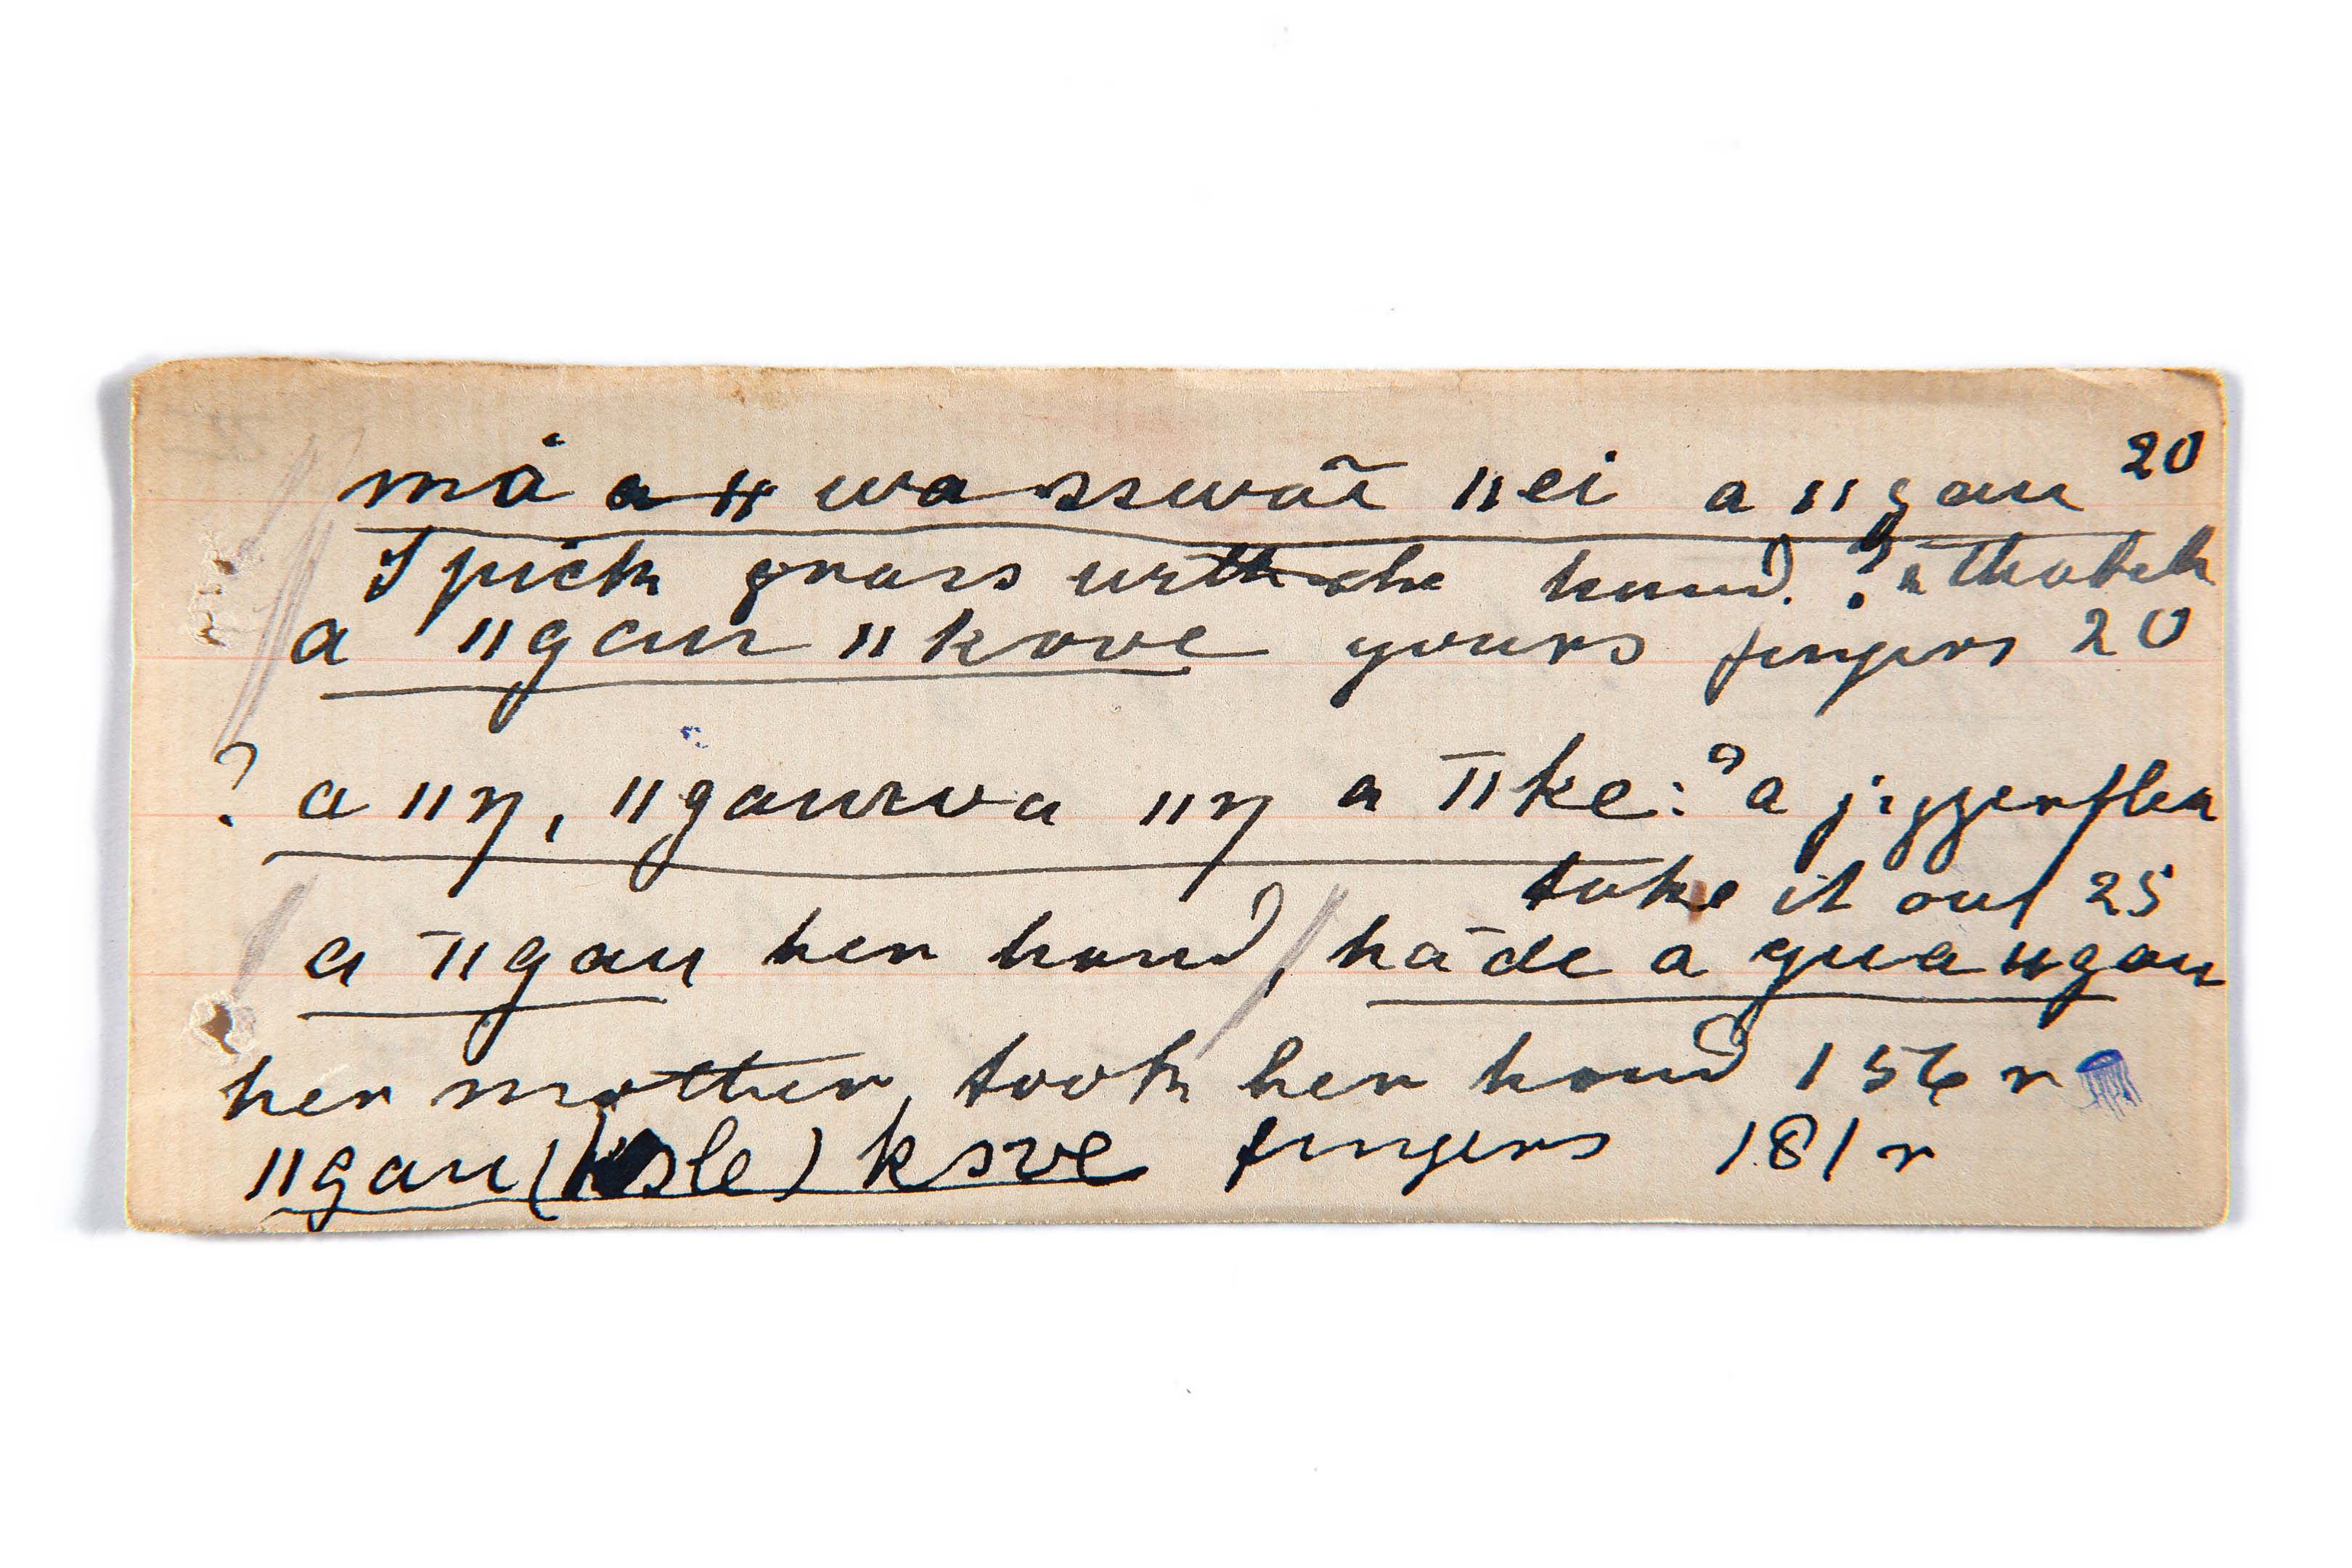 må a ǁ wa sswãã ǁei a ǁgau 20
I pick grass with the hand. ? thatch
a ǁgau ǁkove yours fingers 20
? a ǁŋ, ǁgauwa ǁŋ a ǁ̄ke: ? a jiggerflea
take it out 25
a ǁ̄gau her hand, hāde a gua ǁgau
her mother, took her hand 156 r
ǁgau ( sle) ksve fingers 181 r